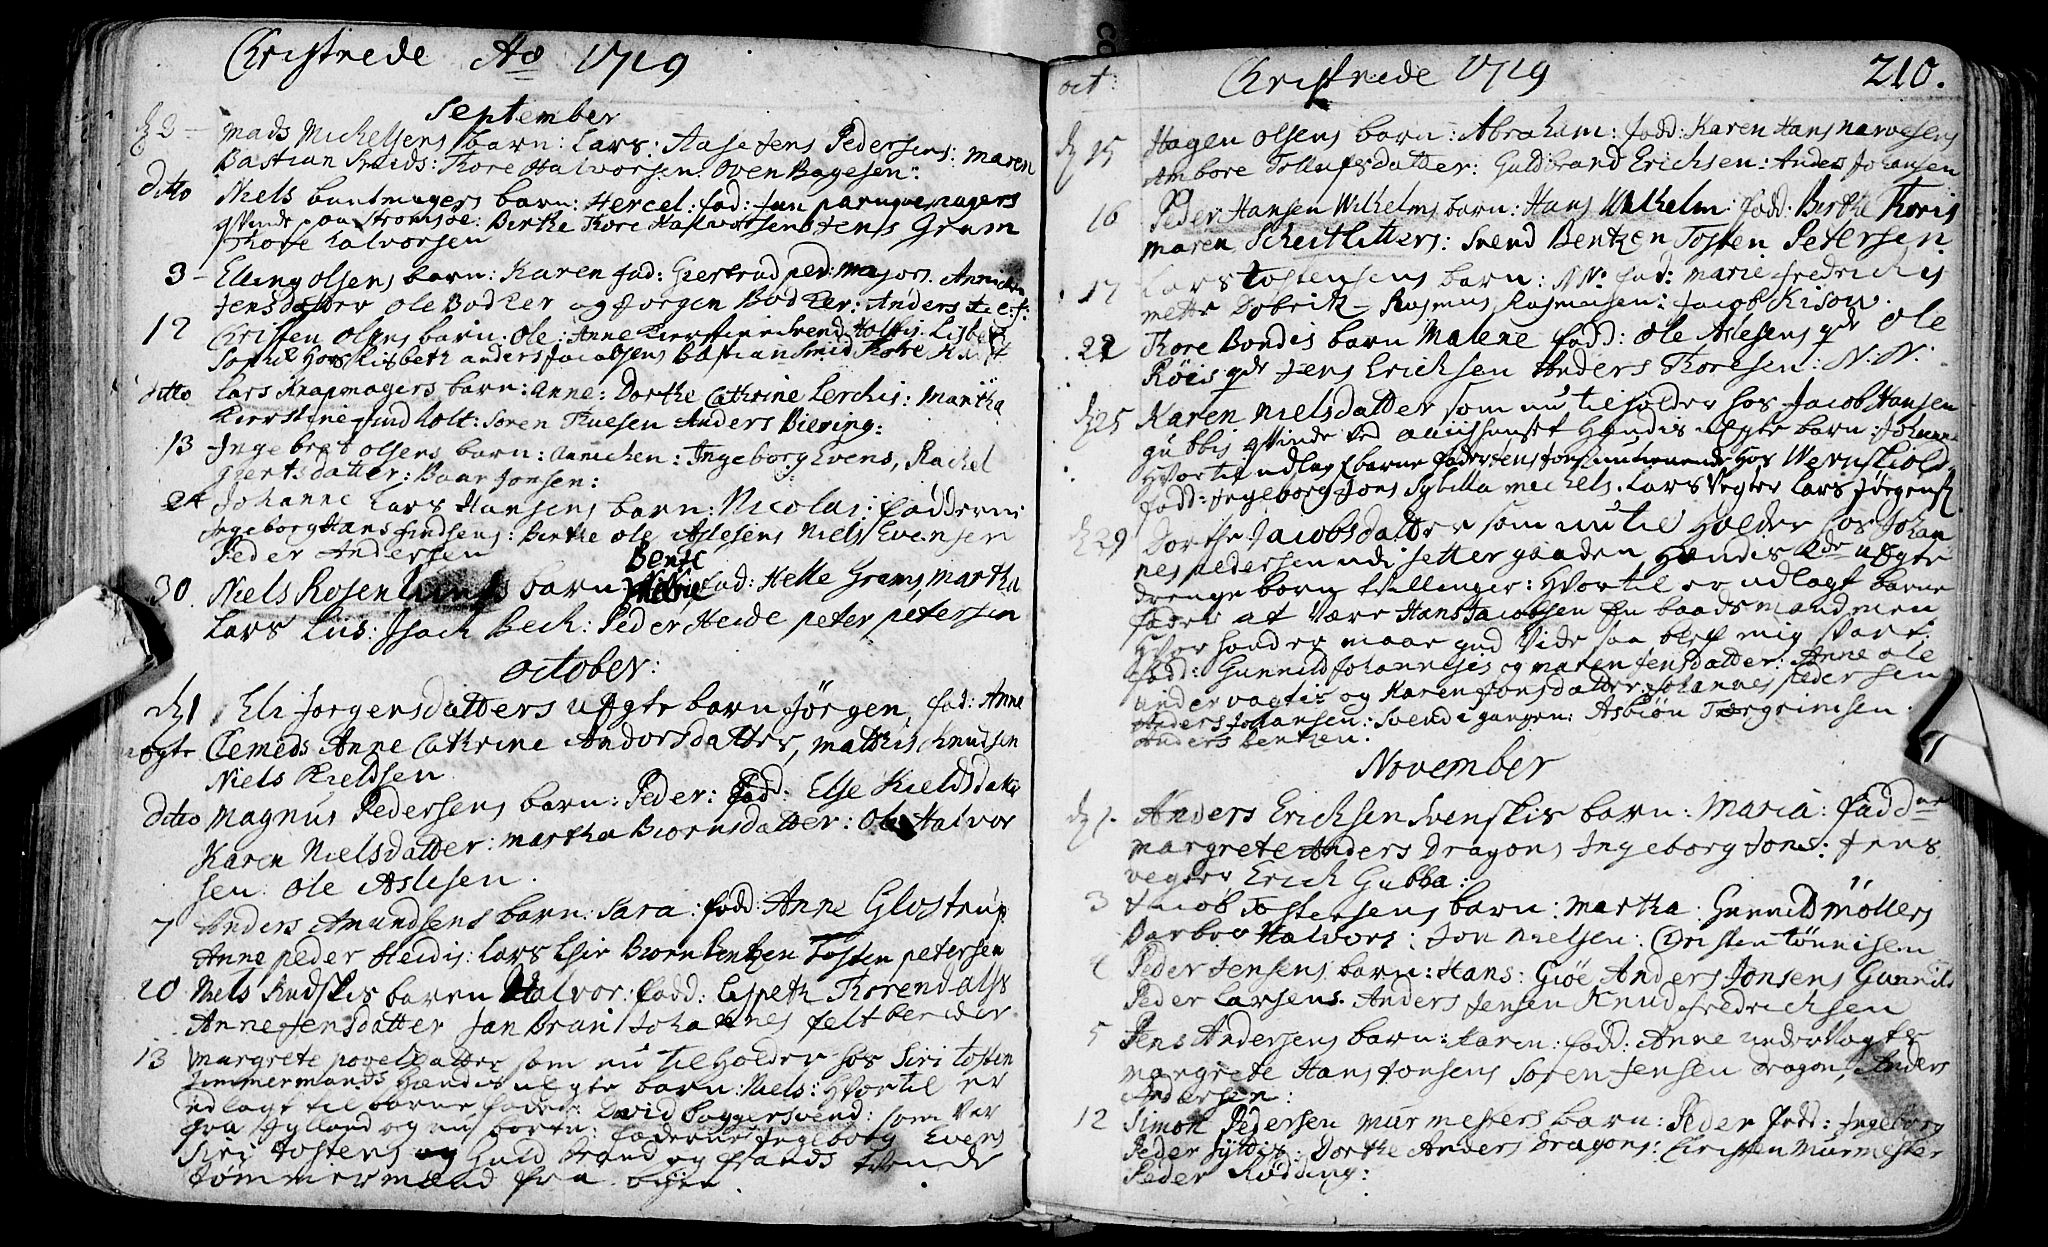 Christnede Ao 1719
September
d 2 Mads Michelsens barn: Lars: Aase Jens Pedersens: Maren
Bastian Smids: Tore Halvorsen: Oven Bagesen:
ditto Niels buntmagers barn: Hercel: fad: Jan parque magers
qvinde paa Stromsøe: Birthe Tore Halvorsens Jens Gram
Tore halvorsen
3 Elling olsens barn: Karen fad: Giertrud ped: Majors. Annichen
Jensdatter ole Bødker og Jørgen Bødker: Anders
12 Christen olsens barn: Ole: Anne Kierstine Svend Holtis: Lisbet
Lisbeth anders Jacobsens Bastian Smid Tore
ditto Lars Knapmagers barn: Anne: Dorthe Cathrine Lerchis: Martha
Kierstine find holt: Søren Tuesen Anders Biering:
13 Ingebret olsens barn: Annichen: Ingeborg Evens, Rachel
giertsdatter: Baar Jonsen:
24 Johanne Lars Hansens barn: Nicolai: fadderne
Ingeborg Hans findsens: Birthe ole Aslesens Niels Evensen
Peder Andersen
Bente
30 Niels Rosenlunds barn fad: Helle Grams, Martha
Lars Liis: Isach Bech: Peder Heide peter petersen
October:
d 1 Eli Jørgensdatters uægte barn Jørgen, fad: Anne
uægte Clemeds Anne Cathrine Andersdatter, Mathis Knudsen
Niels Kieldsen
ditto Magnus Pedersens barn: Peder: fad: Else Kieldsdatter
Karen Nielsdatter: Martha Biørnsdatter: Ole Halvor
sen: Ole Aslesen.
7 Anders Amundsens barn: Sara: fadd: Anne Glostrup
Anne peder Heidis: Lars Biørn bentzen Tosten petersen
10 Niels Rudskis barn Halvor: fadd: Lisbeth Torendahls
Anne Jensdatter Jan Brun Johannes feltbereder
13 Margrete povelsdatter som nu til holder hos Siri Tosten
Timmermands Hændis uægte barn: Niels: Hvortil er
udlagt til barne fader: David baggersvend: som var
fra Jylland og nu borte: fadderne Ingeborg Evens
Siri Tostens og Guldbrand og frands
Tømmermænd fra byen.
oct: Christnede 1719 210.
d 15 Hagen olsens barn: Abraham: fadd: Karen Hans narvesens
Ambore Tollufsdatter: Guldbrand Erichsen: Anders Johansen
16 Peder Hansen Wilhelms barn: Hans Wilhelm: fadd: Birthe Toris
Maren Scheitlitters: Svend Bentzen Tosten Petersen
17 Lars Tostensens barn: NN: fad: Marie fredrichs
Mette Dobrik – Rasmus Rasmusen: Jacob Kison.
22 Tore Bondis barn Malene fadd: Ole Aslesens qde Ole
Röis qde Jens Erichsen Anders Toresen: N: N:
d 25 Karen Nielsdatter som nu tilholder hos Jacob Hansen
gubbis qvinde ved Hændis uægte barn: Johanne
Hvortil udlagt barne fader Jens tienende hos Wernskiold
fadd: Ingeborg Jons Sybilla michels. Lars Vegter Lars Jørgensen
d 29 Dorthe Jacobsdatter som nu til holder hos Johan
nes pedersen udi settergaaden Hændis 2de uægte
drenge børn tvillinger: Hvortil er udlagt barne
fader at være Hans Jacobsen En baadsmand men
Hvor hand er maae gud vide saa blef mig svart.
fadd: Gunnild Johannesis og Maren Jensdatter: Anne ole
undervagtis og Karen Jonsdatter Johannes Pedersen
Anders Johansen: Svend i gangen: Asbiøn Torgrimsen.
Anders bentzen.
November
d 1. Anders Erichsen Svenskis barn: Maria: fadd
Margrete Anders Dragons Ingeborg Jons: Jens
vegter Erich Gubba:
3 Jacob Tostensens barn: Martha: Gunnild Møllers
Barbro Halvors: Jon Nielsen: Christen Tønnisen
4 Peder Jensens barn: Hans: Giøe Anders Jonsens Gunnild
Peder Larsens. Anders Jensen Knud fredrichsen
5 Jens Andersens barn: Karen: fadd: Anne undervagts
Margrete Hans Jonsens Soren Jensen Dragon, Anders
Andersen:
12 Simon Pedersen Murmesters barn: Peder fadd: Ingeborg
Peder Syldis: Dorthe Anders Dragons: Christen Murmester
Peder Rødding: